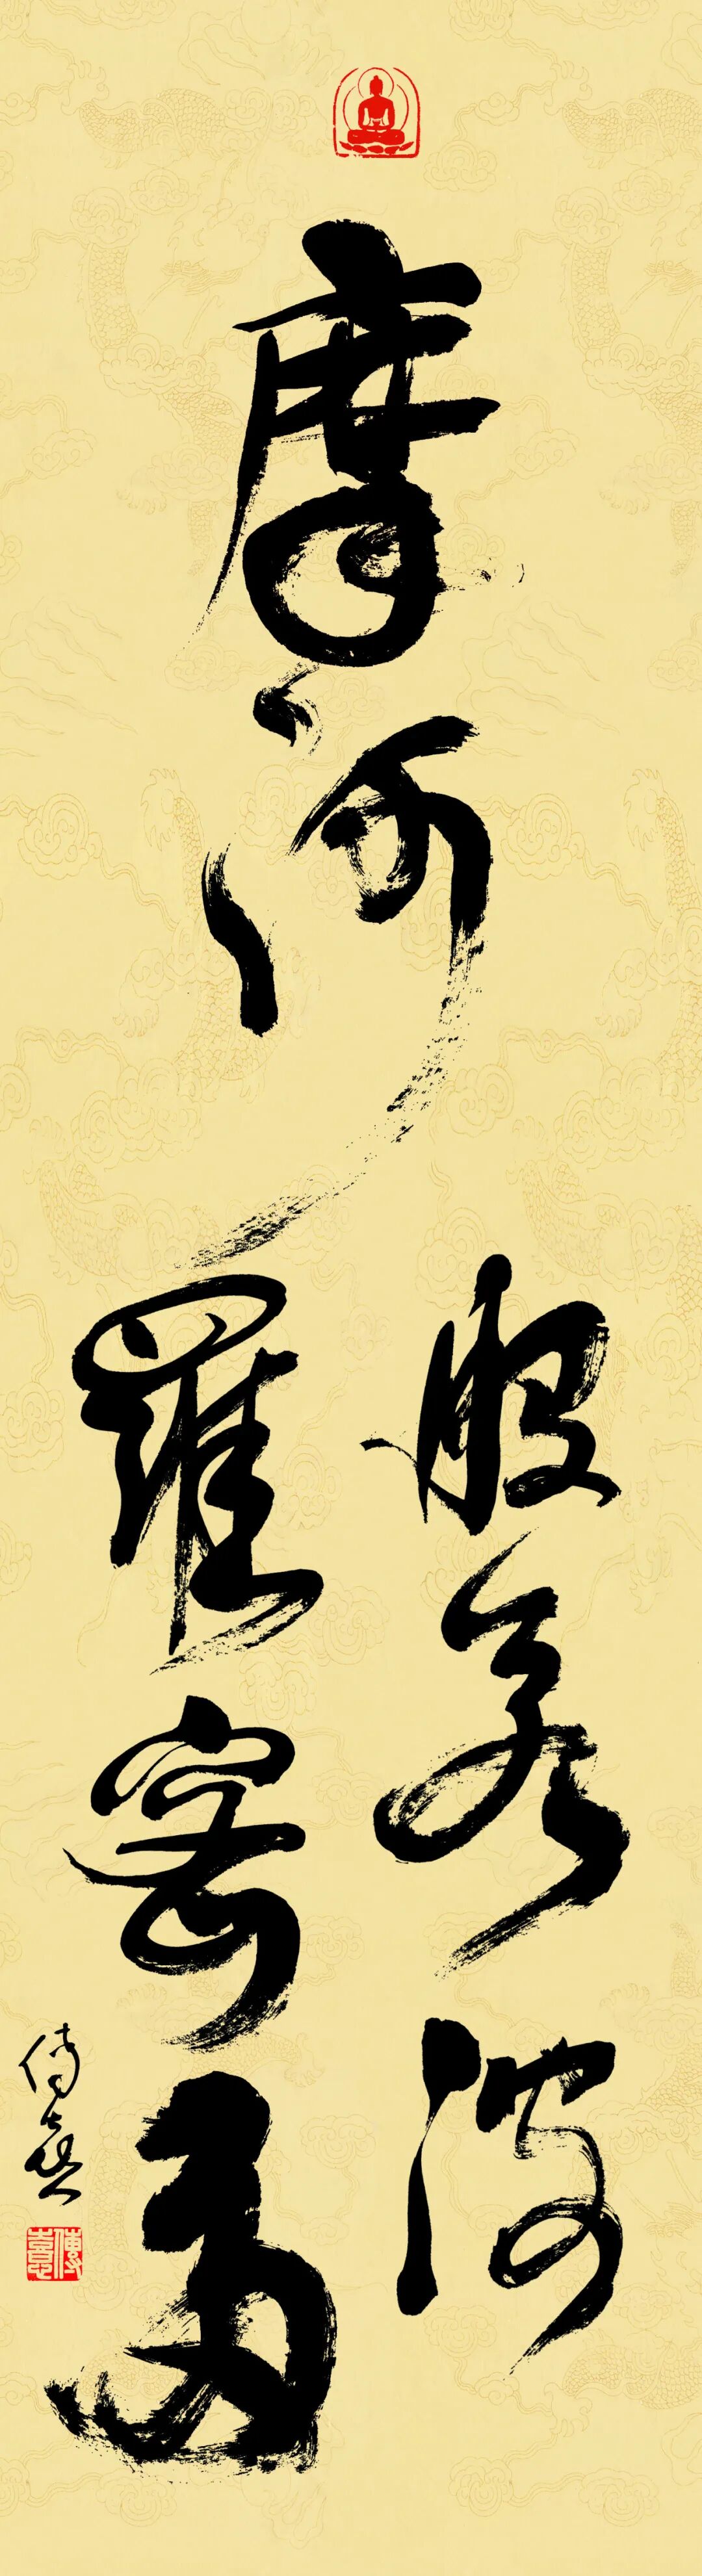 摩訶
般若波
羅蜜多
傳喜
傳喜